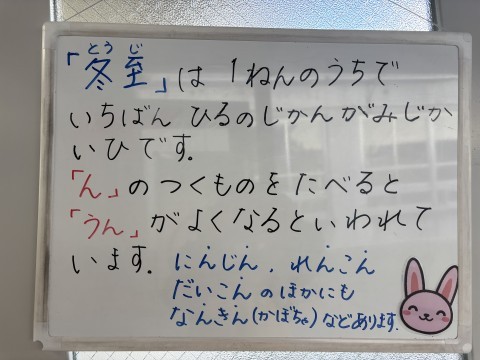 とう じ
「冬至」は 1ねんのうちで
いちばん ひるのじかんがみじか
いひです.
「ん」のつくものをたべると
「うん」がよくなるといわれて
います. にんじん, れんこん
だいこんのほかにも
なんきん(かぼちゃ)などあります.